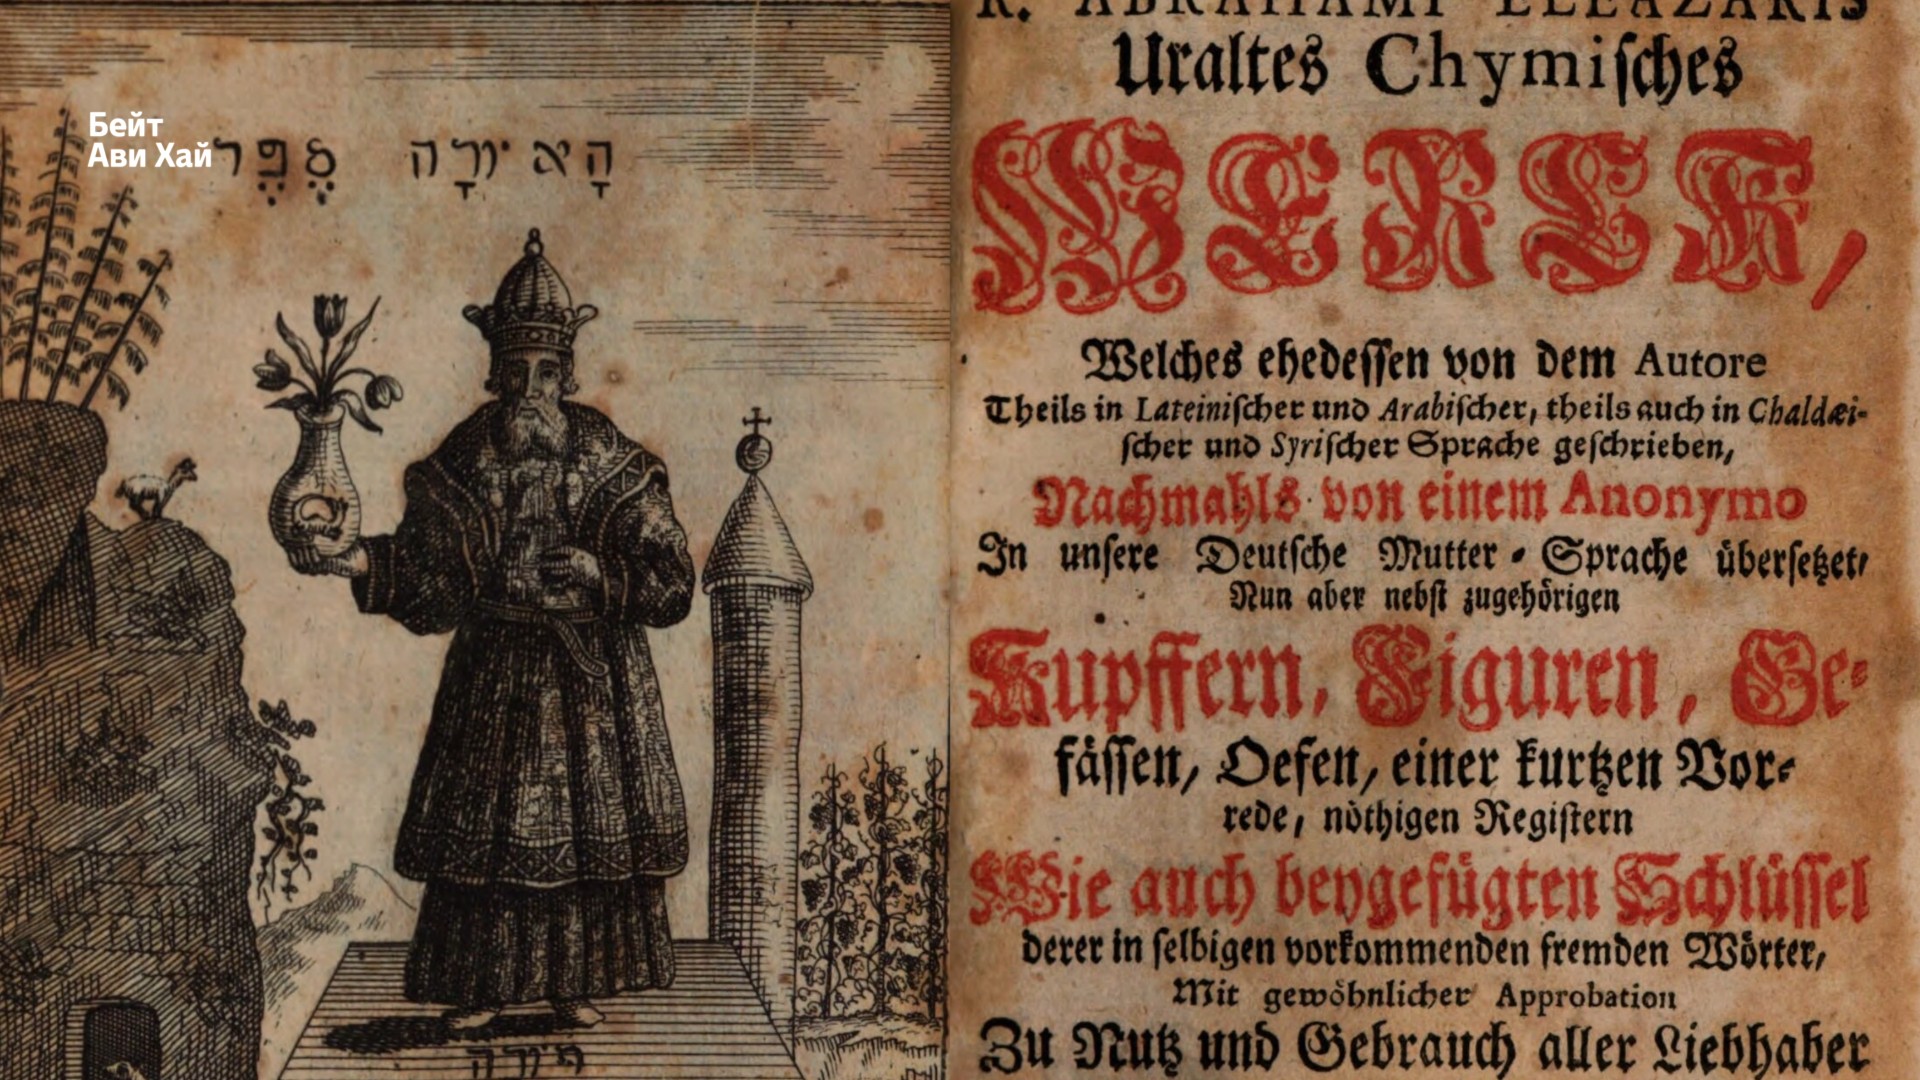 Бейт
Ави Хай
סֶפֶר הָא יורָה
R. ABRAHAMI ELEAZARIS
Uraltes Chymisches
WERCK,
Welches ehedessen von dem Autore
Theils in Lateinischer und Arabischer, theils auch in Chaldæi-
scher und Syrischer Sprache geschrieben,
Nachmahls von einem Anonymo
In unsere Deutsche Mutter-Sprache übersetzet,
Nun aber nebst zugehörigen
Kupffern, Figuren, Ge-
fässen, Oefen, einer kurtzen Vor-
rede, nöthigen Registern
Wie auch beygefügten Schlüssel
derer in selbigen vorkommenden fremden Wörter,
Mit gewöhnlicher Approbation
Zu Nutz und Gebrauch aller Liebhaber